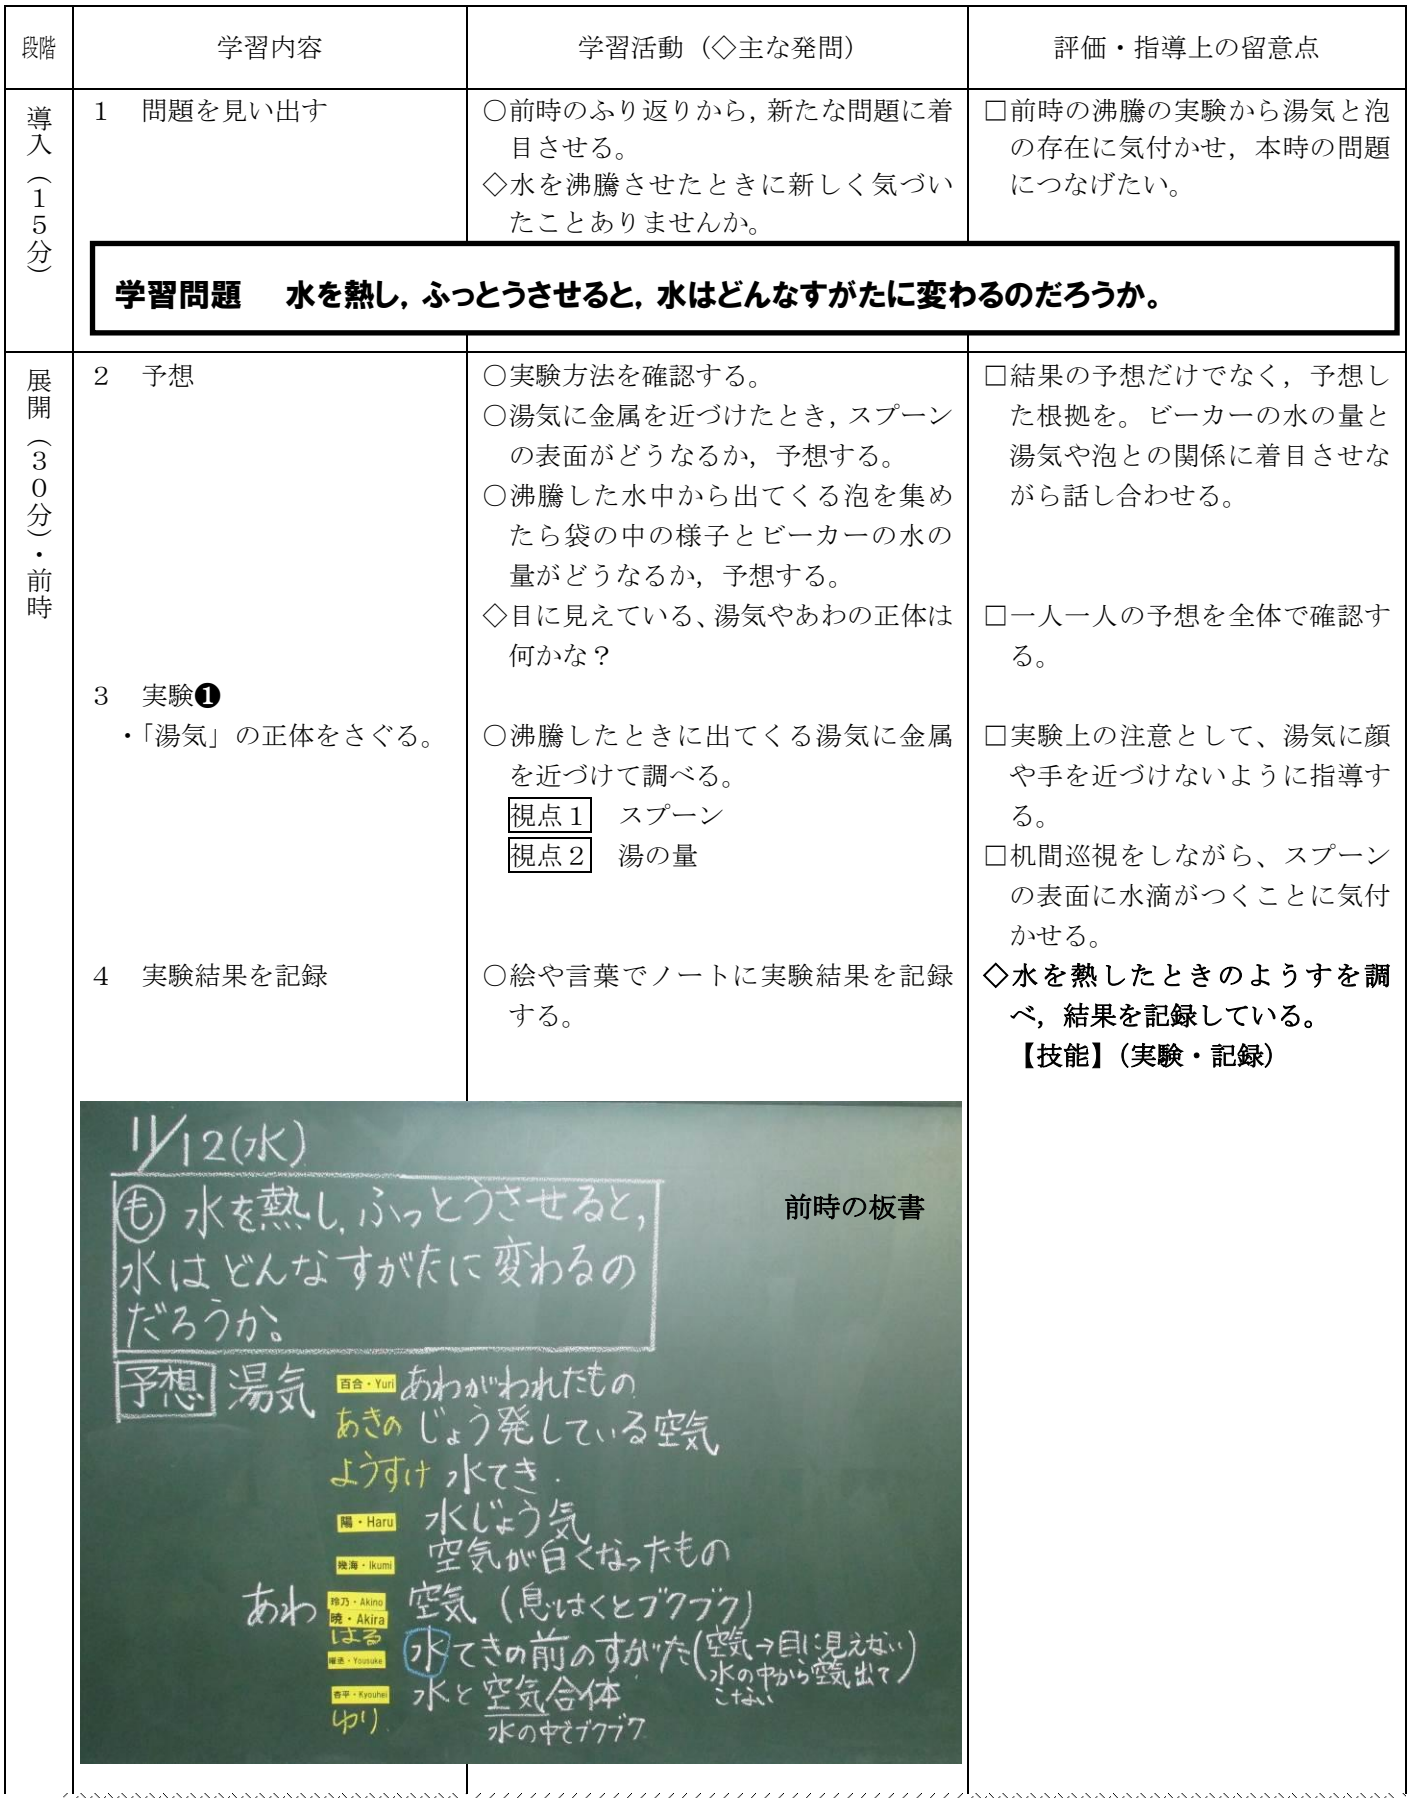 段階
学習内容
学習活動（◇主な発問）
評価・指導上の留意点
導入（１５分）
１　問題を見い出す
○前時のふり返りから，新たな問題に着
目させる。
◇水を沸騰させたときに新しく気づい
たことありませんか。
□前時の沸騰の実験から湯気と泡
の存在に気付かせ，本時の問題
につなげたい。
学習問題　水を熱し，ふっとうさせると，水はどんなすがたに変わるのだろうか。
展開（３０分）・前時
２　予想
○実験方法を確認する。
○湯気に金属を近づけたとき，スプーン
の表面がどうなるか，予想する。
○沸騰した水中から出てくる泡を集め
たら袋の中の様子とビーカーの水の
量がどうなるか，予想する。
◇目に見えている、湯気やあわの正体は
何かな？
□結果の予想だけでなく，予想し
た根拠を。ビーカーの水の量と
湯気や泡との関係に着目させな
がら話し合わせる。
□一人一人の予想を全体で確認す
る。
３　実験❶
・「湯気」の正体をさぐる。
○沸騰したときに出てくる湯気に金属
を近づけて調べる。
視点１　スプーン
視点２　湯の量
□実験上の注意として、湯気に顔
や手を近づけないように指導す
る。
□机間巡視をしながら、スプーン
の表面に水滴がつくことに気付
かせる。
４　実験結果を記録
○絵や言葉でノートに実験結果を記録
する。
◇水を熱したときのようすを調
べ，結果を記録している。
【技能】（実験・記録）
11/12(水)
前時の板書
も 水を熱し，ふっとうさせると，
水はどんなすがたに変わるの
だろうか。
予想 湯気 百合・Yuri あわがわれたもの
あきの じょう発している空気
ようすけ 水てき.
陽・Haru 水じょう気
幾海・Ikumi 空気が白くなったもの
あわ 玲乃・Akino 空気（息はくとブクブク）
暁・Akira
はる 水てきの前のすがた（空気→目に見えない
水の中から空気出て
こない）
Yousuke
杏平・Kyouhei 水と空気合体
ゆり 水の中でブクブク